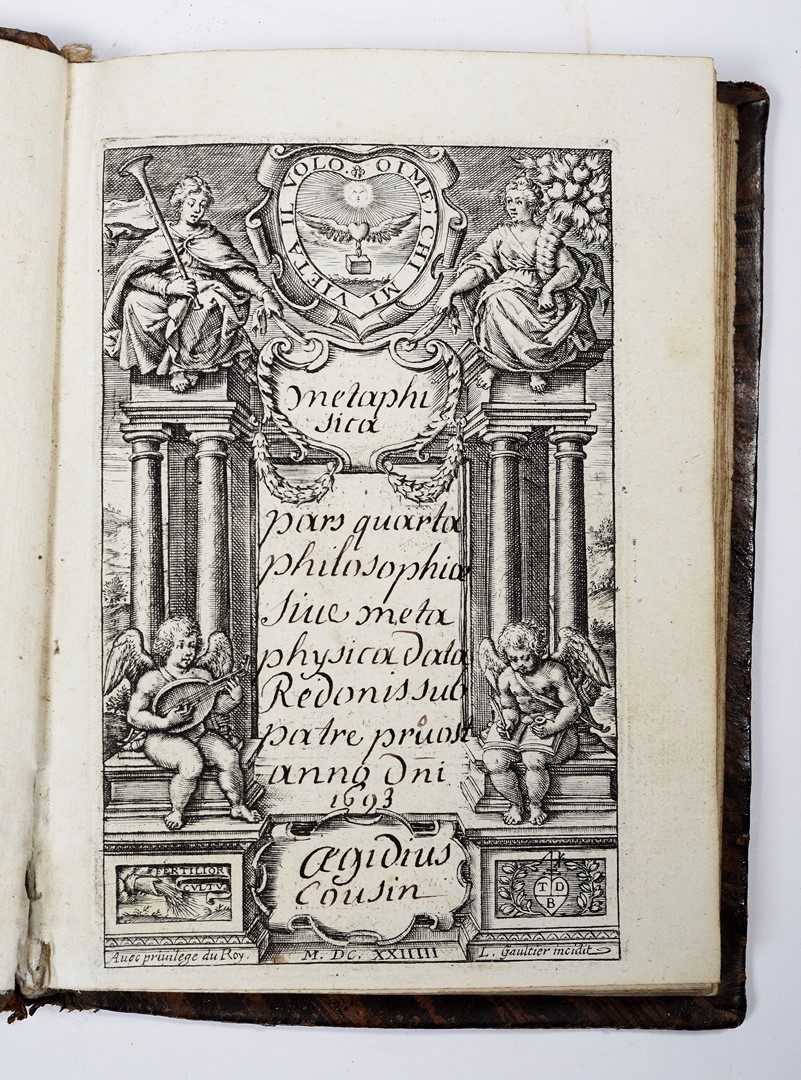 VIETA IL VOLO. OIME, CHI MI
metaphi
sica
pars quarta
philosophiæ
siue meta
physica data
Redonis sub
patre pruost
anno Dni
1693
FERTILIOR
CVLTV
T D
B
Ægidius
Cousin
Auec priuilege du Roy.
M. DC. XXIIIII
L. Gaultier incidit